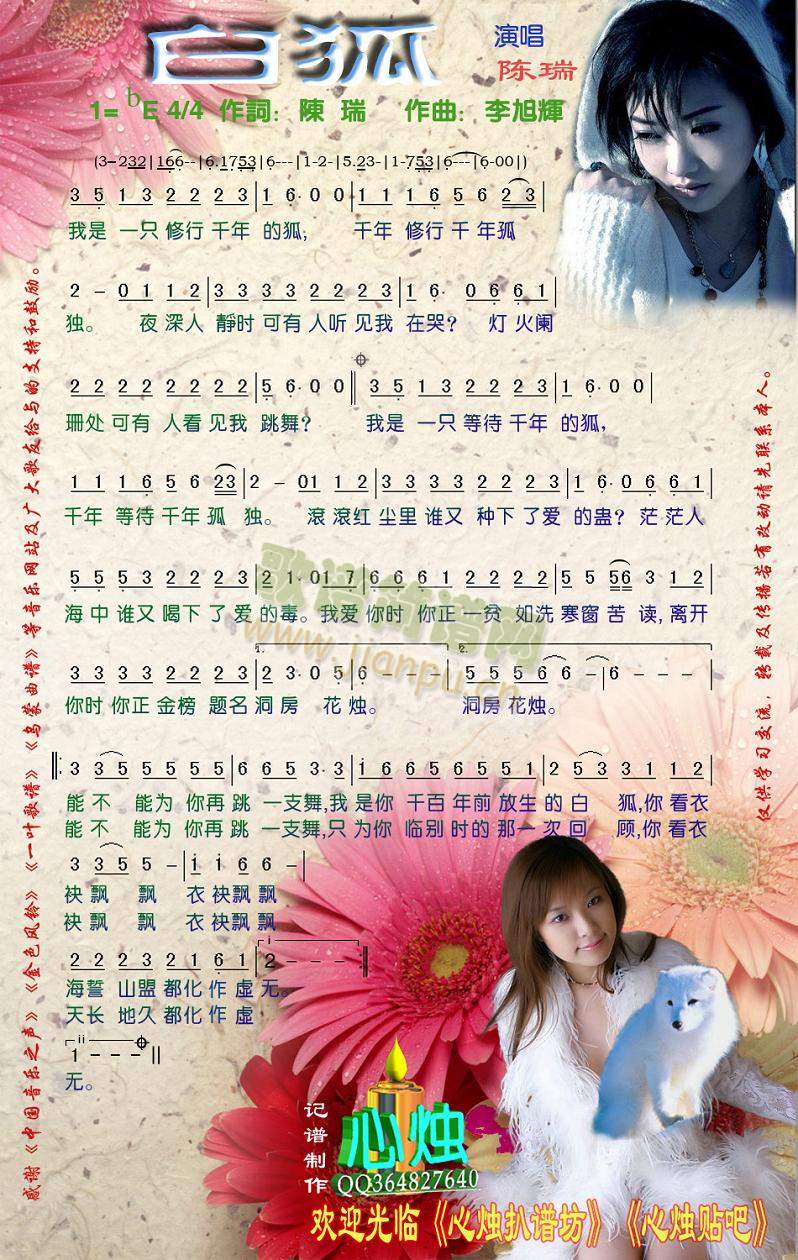 白狐
演唱
陈瑞
1= bE 4/4 作詞：陳 瑞 作曲：李旭輝
(3-232|166--|6.1753|6---|1-2-|5.23-|1-753|6---|6-00|)
3 5 1 3 2 2 2 3|1 6·0 0|1 1 1 6 5 6 2 3|
我是 一只 修行 千年 的狐， 千年 修行 千 年孤
2 - 0 1 1 2|3 3 3 3 2 2 2 3|1 6· 0 6 6 1|
独。 夜 深人 静时 可有 人听 见我 在哭？ 灯 火阑
2 2 2 2 2 2 2 2|5 6·0 0‖3 5 1 3 2 2 2 3|1 6·0 0|
珊处 可有 人看 见我 跳舞？ 我是 一只 等待 千年 的狐，
1 1 1 6 5 6 23|2 - 01 1 2|3 3 3 3 2 2 2 3|1 6·0 6 6 1|
千年 等待 千年 孤 独。 滚 滚红 尘里 谁又 种下 了爱 的蛊？ 茫 茫人
5 5 5 3 2 2 2 3|2 1·01 7|6 6 6 1 2 2 2 2|5 5 56 3 1 2|
海 中 谁又 喝下 了 爱 的毒。我爱 你时 你正 一贫 如洗 寒窗 苦 读，离开
3 3 3 3 2 2 2 3|2 3·0 5|6 - - -|5 5 5 6 6 -|6 - - -|
1.
2.
你时 你正 金榜 题名 洞 房 花 烛。 洞房 花烛。
‖: 3 3 5 5 5 5 5|6 6 5 3·3|i 6 6 5 6 5 5 1|2 5 3 3 1 1 2|
能 不 能为 你再 跳 一支舞，我是你 千百 年前 放生 的 白 狐，你看衣
能 不 能为 你再 跳 一支舞，只为你 临别 时的 那一 次 回 顾，你看衣
3 3 5 5 -|i i 6 6 -|
袂飘 飘 衣袂飘飘
袂飘 飘 衣袂飘飘
2 2 2 3 2 1 6 1|2 - - -:‖
i
海誓 山盟 都化 作 虚 无。
天长 地久 都化 作 虚
ii
1 - - -‖
无。
感谢《中国音乐之声》《金色风铃》《一叶歌谱》《乌蒙曲谱》等音乐网站及广大歌友给与的支持和鼓励。
仅供学习交流，转载及传播若有改动请先联系本人。
歌谱简谱网
www.jianpu.cn
记谱制作
心烛
QQ364827640
欢迎光临《心烛扒谱坊》《心烛贴吧》